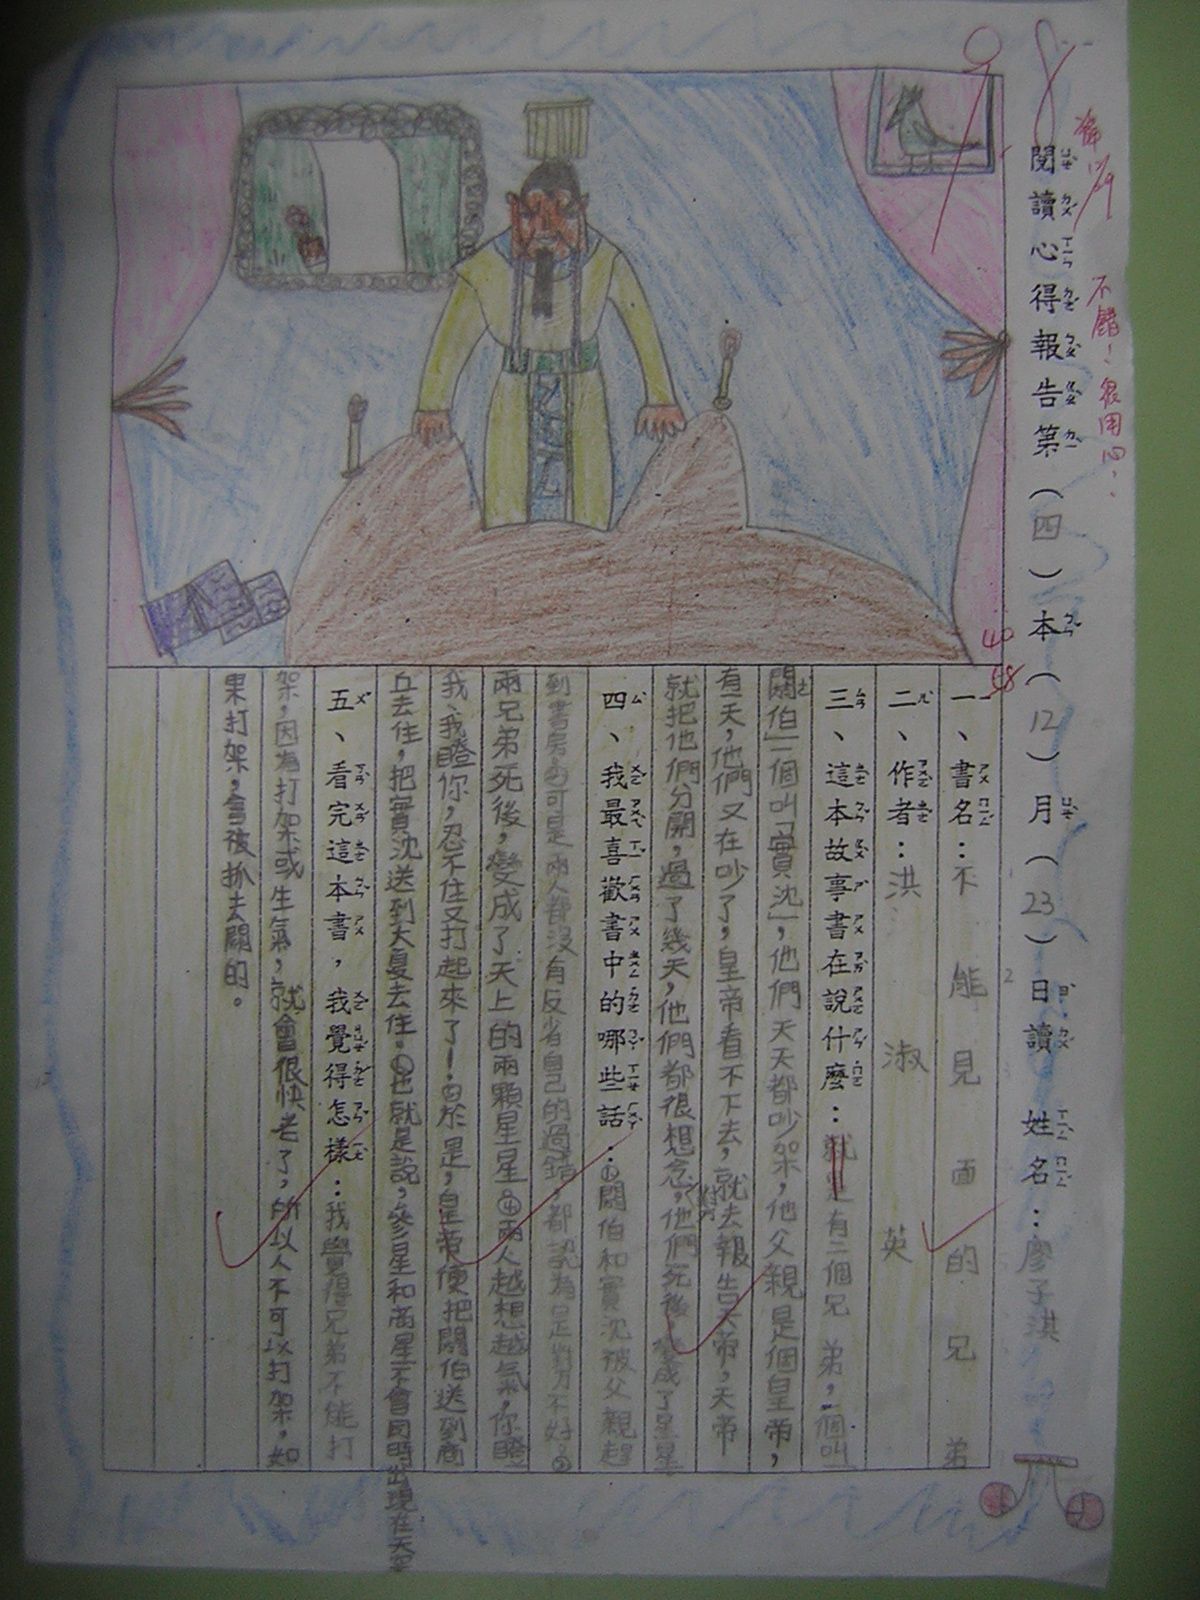 閱讀心得報告第（四）本（12）月（23）日讀 姓名：廖子淇
不錯！很用心！
98
40
48
一、書名：不能見面的兄弟
二、作者：洪淑英
三、這本故事書在說什麼：就是有二個兄弟，一個叫
「閼伯」一個叫「實沈」，他們天天都吵架，他父親是個皇帝，
有一天，他們又在吵了，皇帝看不下去，就去報告天帝，天帝
就把他們分開，過了幾天，他們都很想念對方，他們死後變成了星星
四、我最喜歡書中的哪些話：①閼伯和實沈被父親趕
到書房②可是兩人都沒有反省自己的過錯，都認為是對方不好。③
兩兄弟死後，變成了天上的兩顆星星④兩人越想越氣，你瞪
我、我瞪你，忍不住又打起來了！⑤於是，皇帝便把閼伯送到商
丘去住，把實沈送到大夏去住。⑥也就是說，參星和商星不會同時出現在天空
五、看完這本書，我覺得怎樣：我覺得兄弟不能打
架，因為打架或生氣，就會很快老了，所以人不可以打架，如
果打架，會被抓去關的。